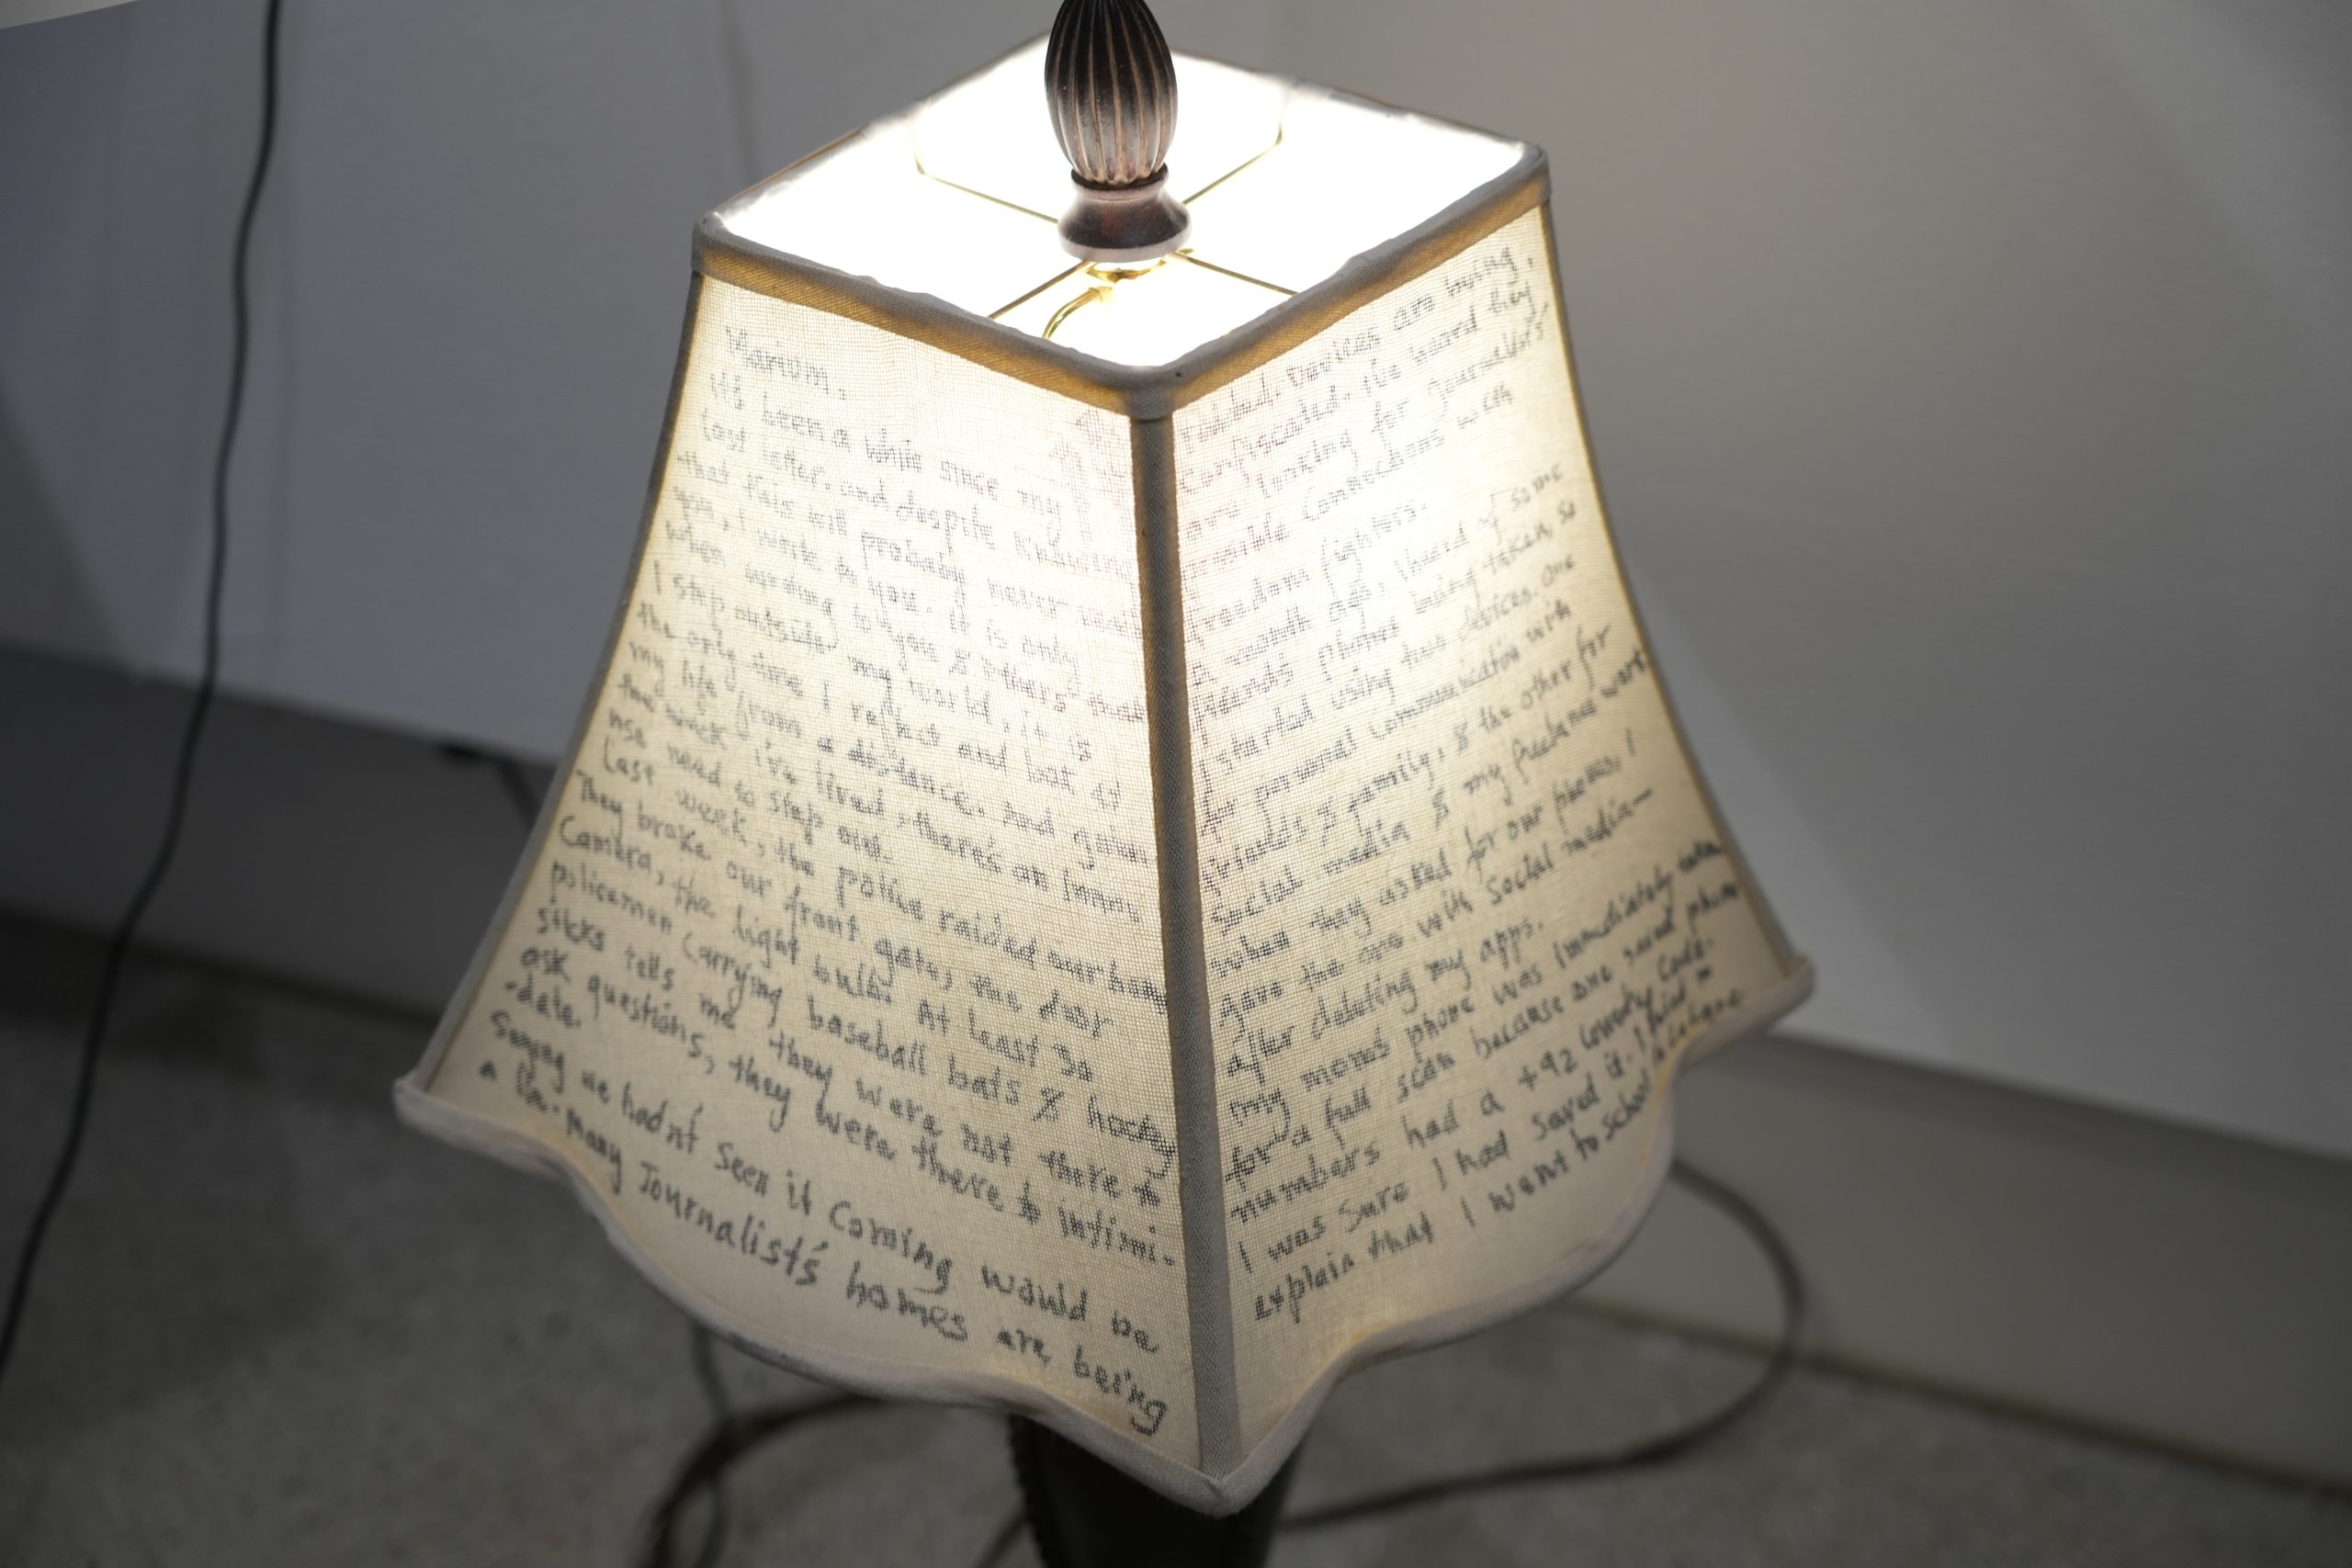 Marium,
it's been a while since my
last letter, and despite knowing
that this will probably never reach
you, I write to you. It is only
when writing to you & others that
I step outside my world, it is
the only time I reflect and look at
my life from a distance. And given
the week I've lived, there's an immen-
se need to step out.
Last week, the police raided our home
They broke our front gate, the door
Camera, the light bulb. At least 30
policemen carrying baseball bats & hockey
sticks tells me they were not there to
ask questions, they were there to intimi-
-date.
Saying we hadn't seen it coming would be
a lie. many Journalist's homes are being
raided, devices are being
confiscated. The word they
are looking for journalists'
possible connections with
freedom fighters.
A month ago, I heard of some
friends' phones being taken, so
I started using two devices. One
for personal communication with
friends & family, & the other for
social media & my freelance work.
When they asked for our phones, I
gave the one with social media—
after deleting my apps.
my mom's phone was immediately taken
for a full scan because one saved phone
numbers had a +92 country code.
I was sure I had saved it. I tried to
explain that I went to school in Lahore